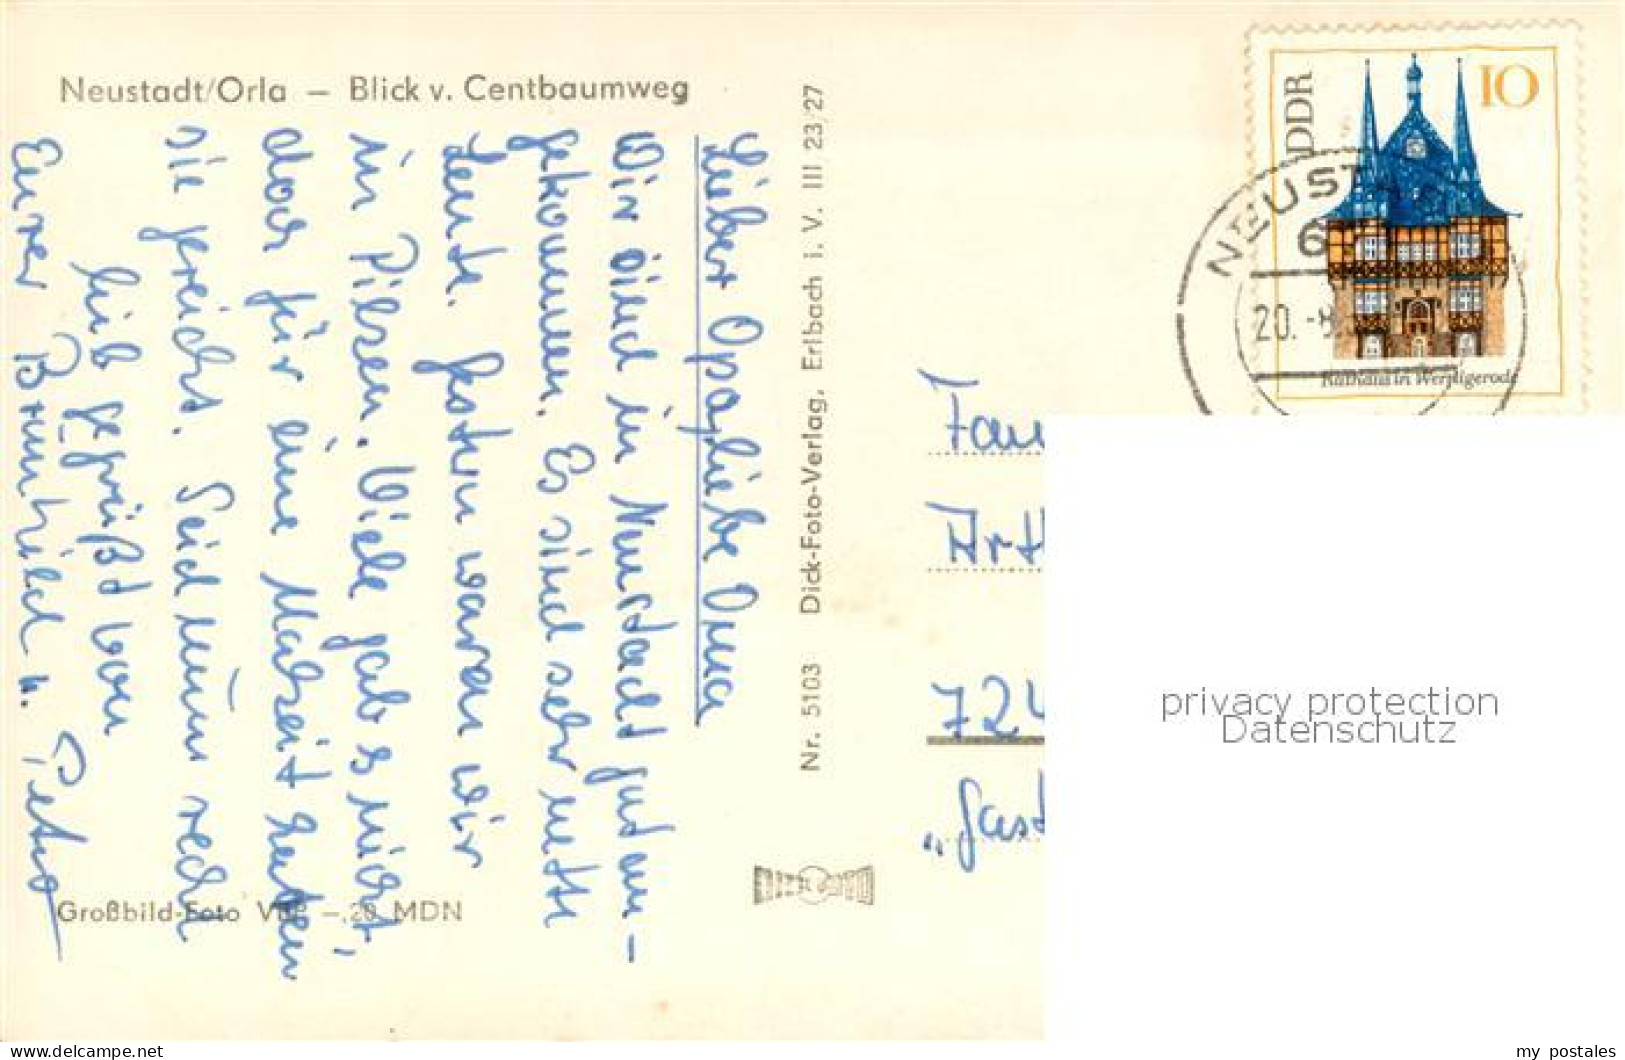 Neustadt/Orla — Blick v. Centbaumweg
Lieber Opa, liebe Oma
Wir sind in Neustadt gut an-
gekommen. Es sind sehr nette
Leute. Gestern waren wir
in Pilsen. Viele gab s nicht,
doch für eine Mahlzeit hatten
sie gereicht. Seid nun recht
lieb gegrüßt von
Eurer Brunhild u. Peter
Großbild-Foto V — ,20 MDN
Nr. 5103 Dick-Foto-Verlag, Erlbach i. V. III 23/27
DDR
10
Rathaus in Wernigerode
NEUST
6
20. -8.
Fam
Arth
724
„Gast
privacy protection
Datenschutz
delcampe.net
my postales